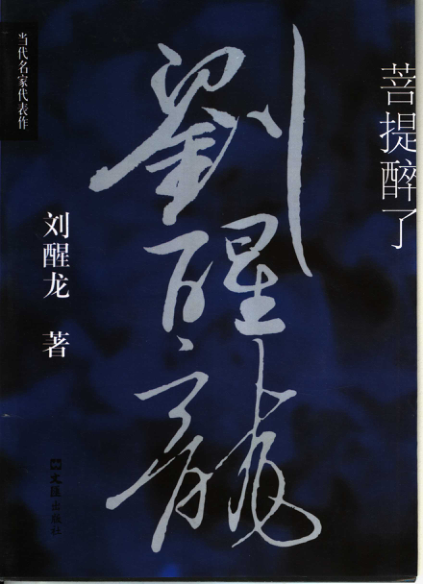 菩提醉了
劉醒龍
当代名家代表作
刘醒龙 著
文汇出版社